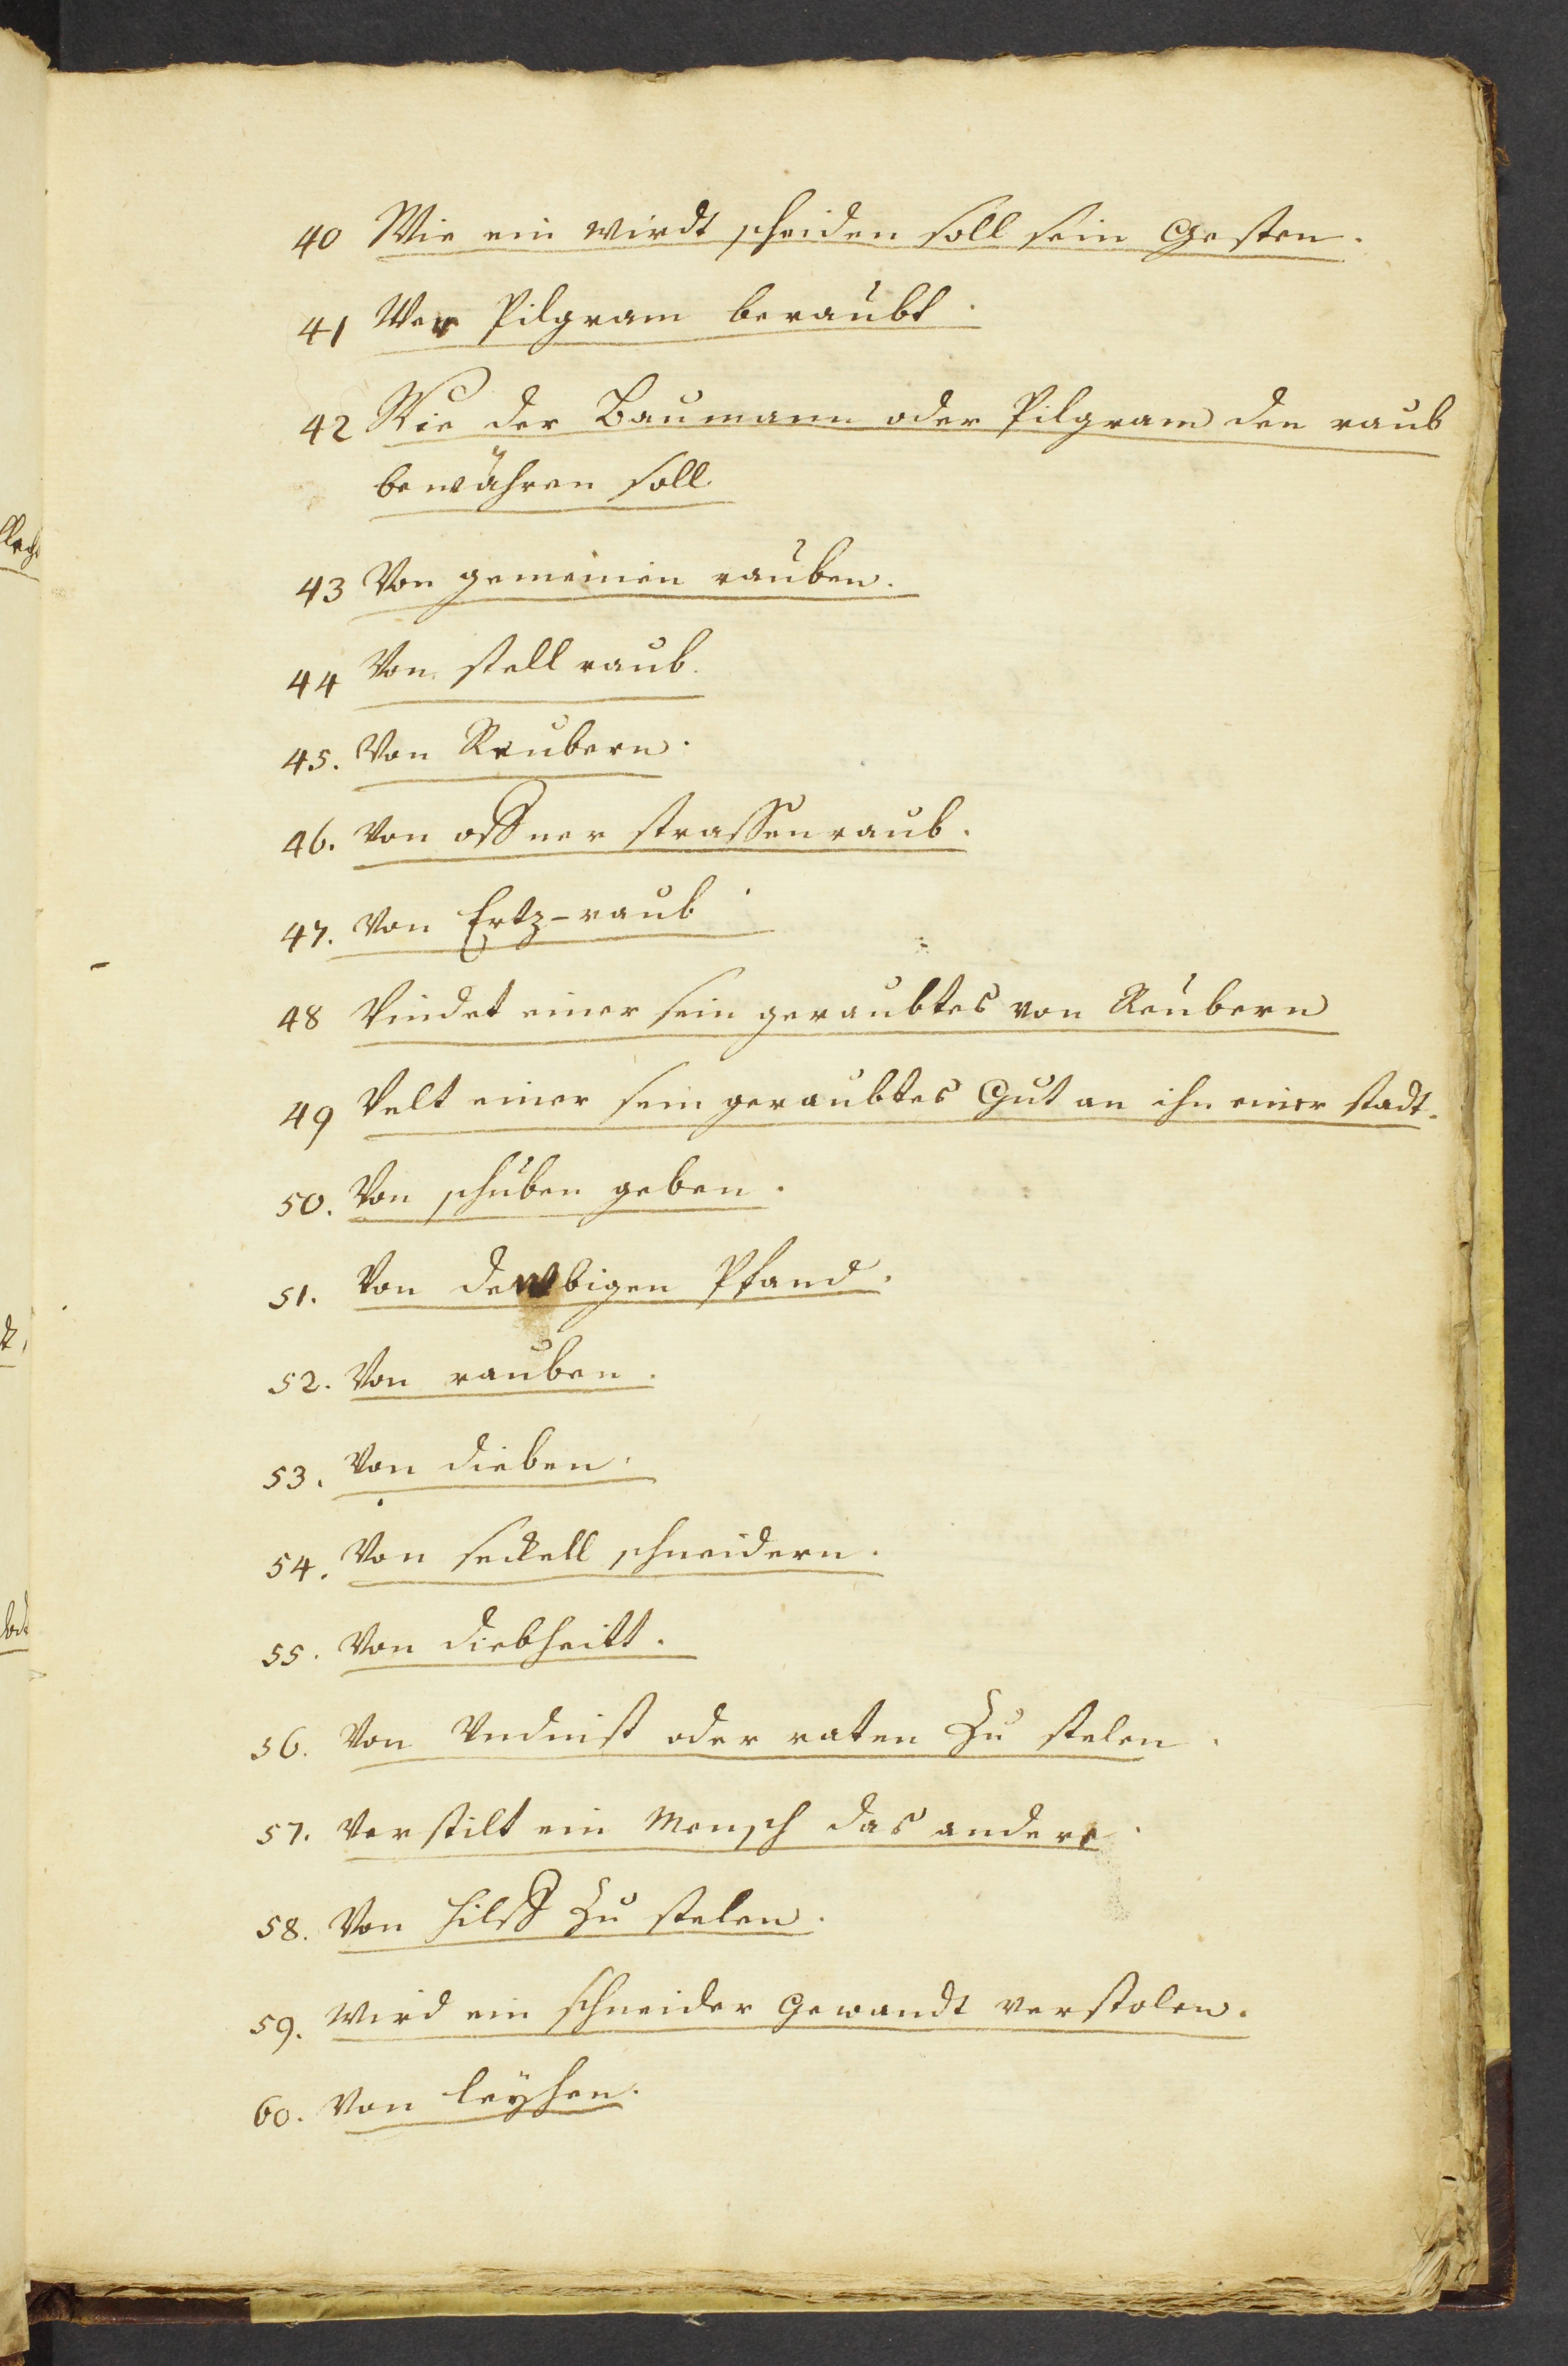 40 Wie ein wirdt scheiden soll sein Gesten.
41 Wer Pilgram beraubt.
42 Wie der Baumann oder Pilgram den raub
bewähren soll.
43 Von gemeinen rauben.
44 Von stell raub.
45. Von Reubern.
46. Von offner strassenraub.
47. Von Ertz-raub.
48 Vindet einer sein geraubtes von Reubern
49 Velt einer sein geraubtes Gut an ihn einer stadt.
50. Von schuben geben.
51. Von dewbigen Pfand.
52. Von rauben.
53. Von dieben.
54. Von seckell schneidern.
55. Von diebheitt.
56. Von oder raten Zu stelen.
57. Verstilt ein Mensch das andere.
58. Von hilff Zu stelen.
59. Wird ein schneider Gewandt verstolen.
60. Von leyhen.